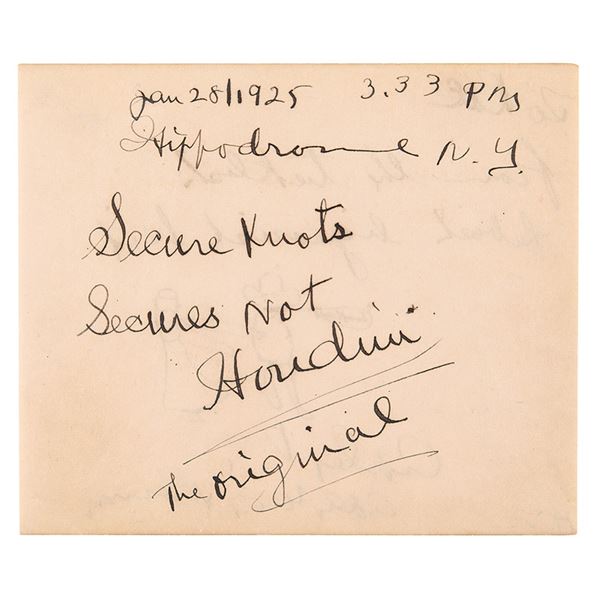 Jan 28/1925 3.33 PM
Hippodrome N.Y.
Secure Knots
Secures Not
Houdini
The original